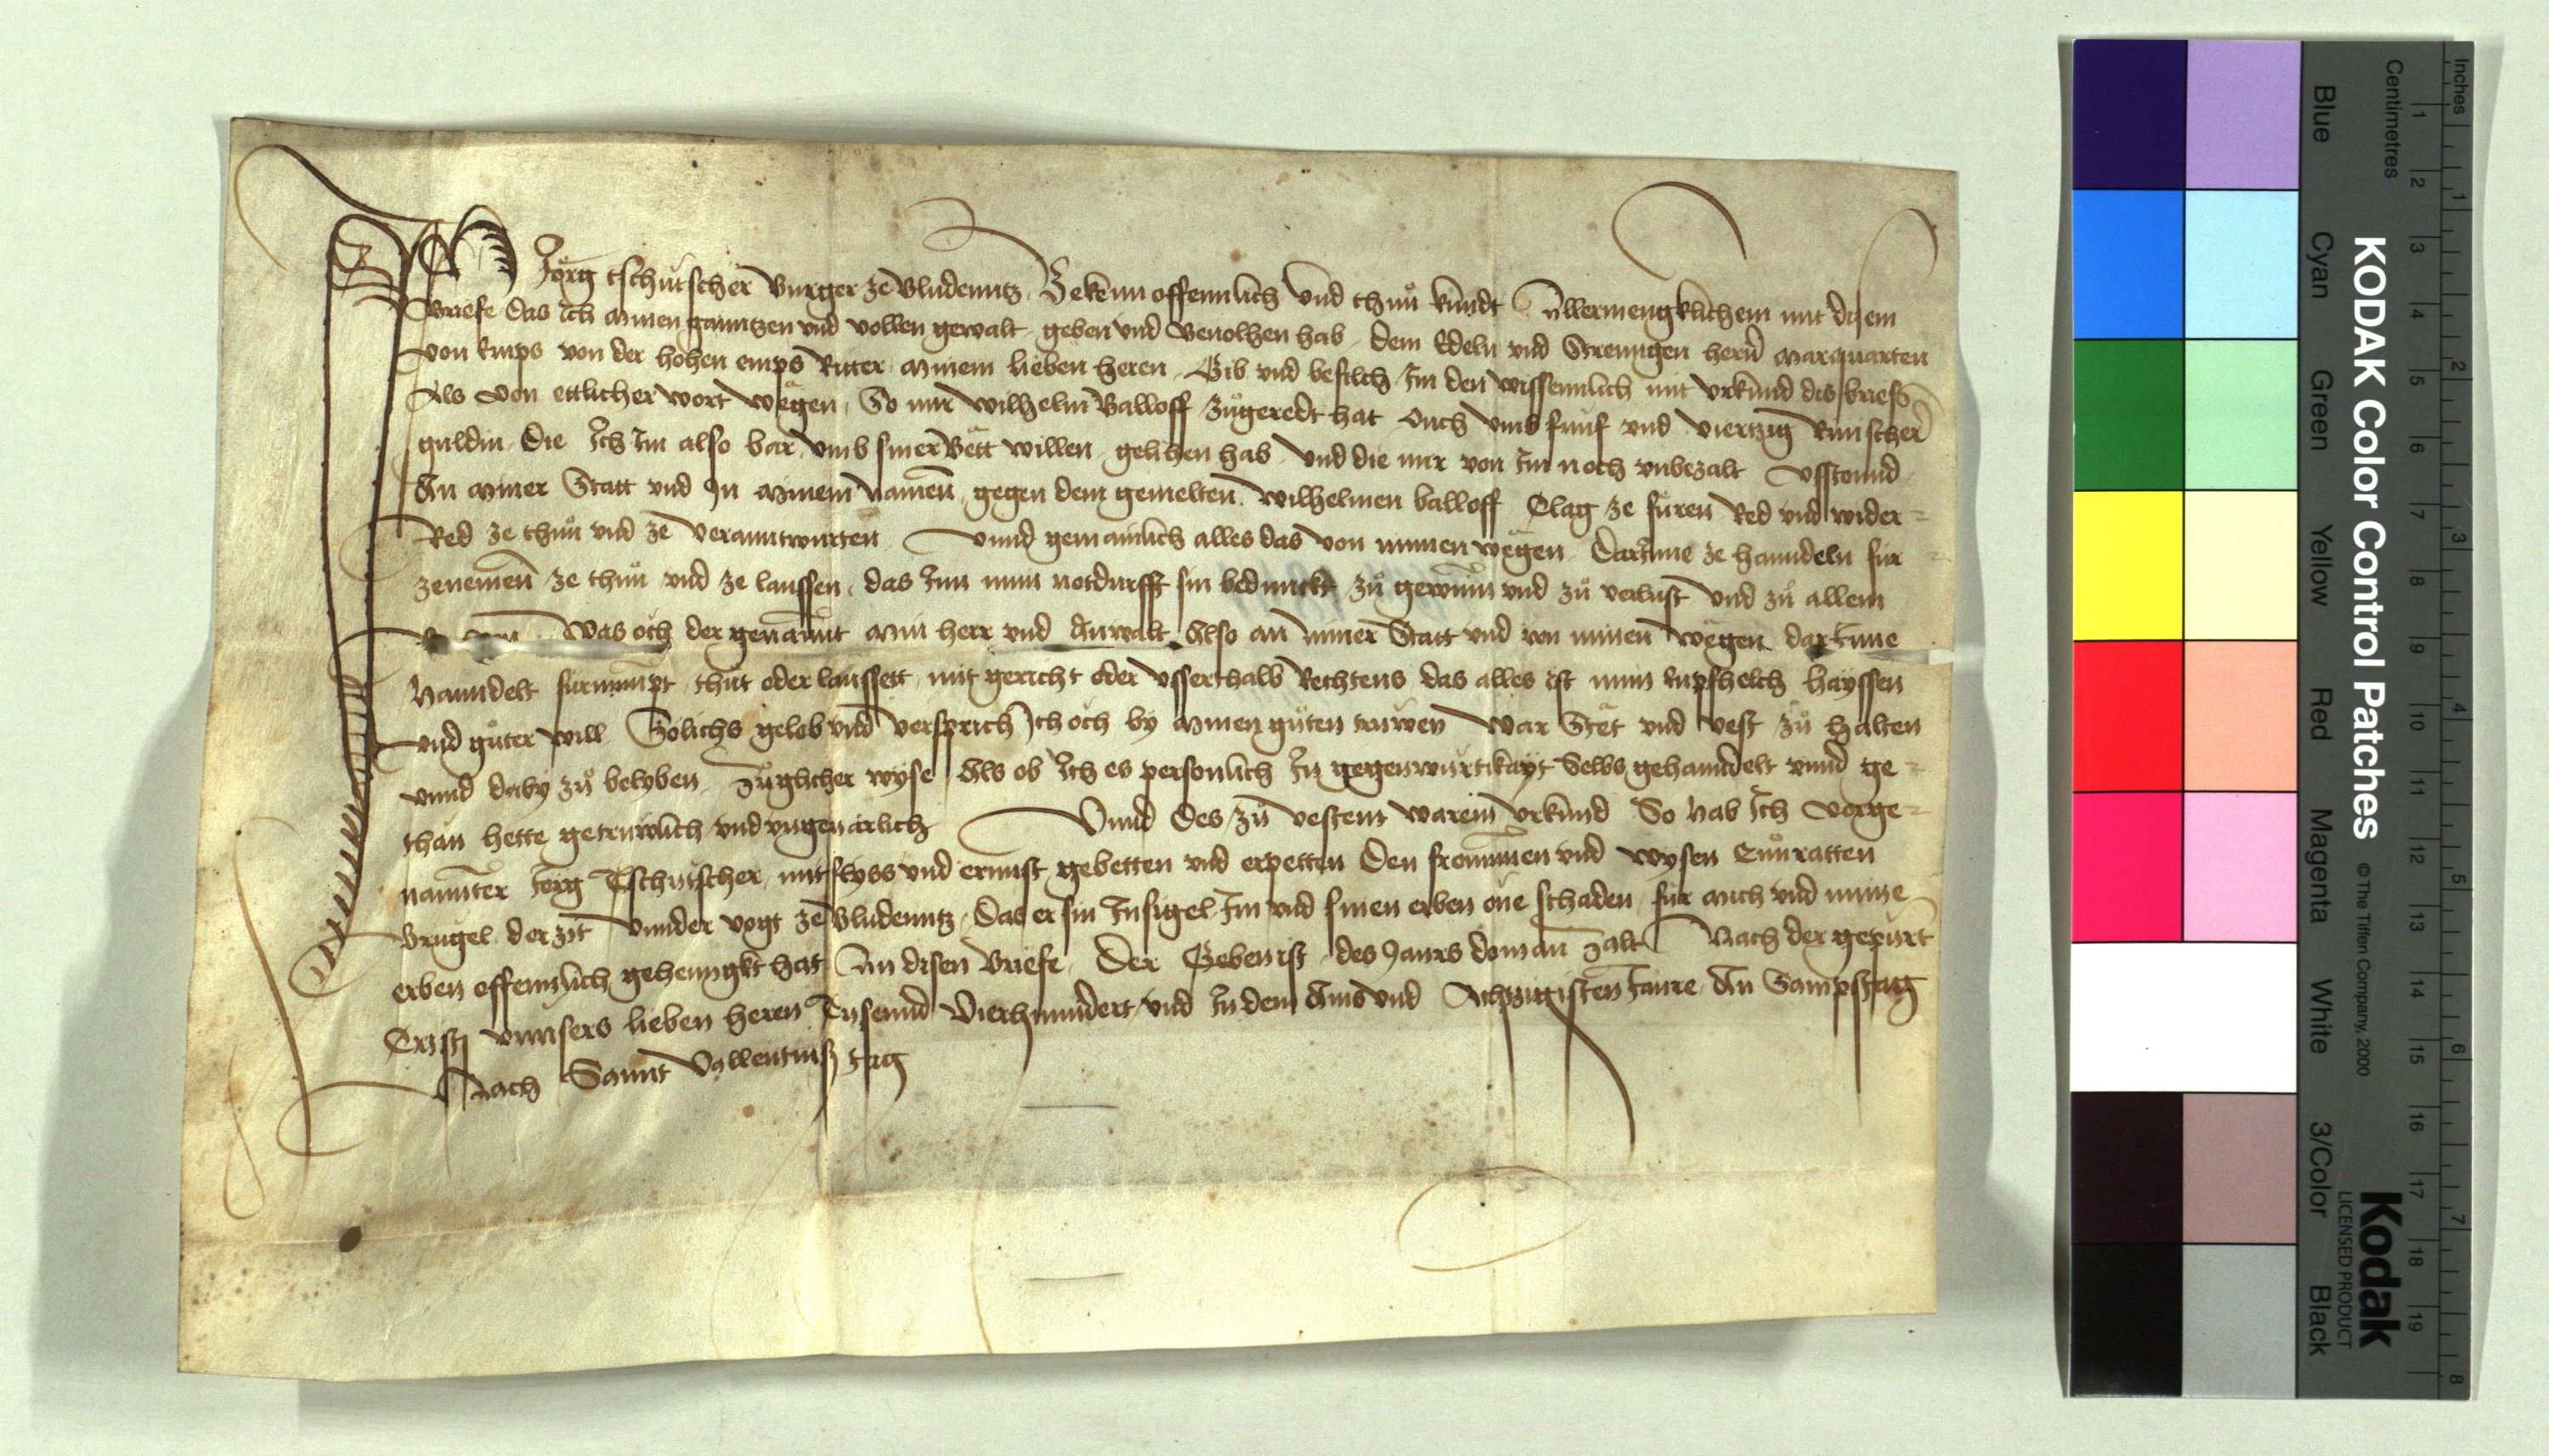 Ich Jörg tschütscher Burger ze Bludenntz Bekenn offennlich vnd thuͦn kundt Allermengklichem mit disem
Briefe das ich minen ganntzen vnd vollen gewalt geben vnd Beuolhen hab dem Edeln vnd Strenngen hern marquarten
von Emps von der hohen emps Ritter minem lieben heren Gib vnd befilch Im den wissennlich mit vrkund dis briefs
Als von ettlicher wort wegen So mir wilhelm Balloff zuͦgeredt hat Ouch vmb funf vnd viertzig Rinischer
guldin Die Ich Im also bar vmb siner Bett willen gelihen hab vnd die mir von Im noch vnbezalt vsstannd
An miner Statt vnd In minem namen gegen dem gemelten wilhelmen balloff Clag ze füren Red vnd wider
Red ze thuͦn vnd ze veranntwurten vnnd gemainlich alles das von minen wegen Darinne ze hanndeln für
zenemen ze thuͦn vnd ze laussen das Inn min notdurfft sin bedunckt zuͦ gewinn vnd zuͦ verlust vnd zuͦ allem
Was och der genannt min herr vnd Anwalt Also an miner Statt vnd von minen wegen darInne
Hanndelt fürnimpt thuͦt oder laussett mit gericht oder vsserthalb Rechtens das alles ist min haÿssen
vnd guͦter will Sölichs gelob vnd versprich Ich och by minen guͦten truwen war Stet vnd vest zuͦ halten
vnnd daby zuͦ belyben Zuͦglicher wyse Als ob Ich es personlich In gegenwürtikayt Selbs gehanndelt vnnd ge
than hette getruwlich vnd vngeuarlich Vnnd des zuͦ vestem warem vrkund So hab Ich vorge
nannter Jörg Tschütscher mit flyss vnd ernnst gebetten vnd erpetten Den frommen vnd wysen Cuͦnratten
Brugel der zit vnnder vogt ze Bludenntz Das er sin Insigel Im vnd sinen erben one schaden für mich vnd mine
erben offennlich gehenngkt hat An disen Briefe Der Geben ist des Jaurs do man Zalt Nach der gepürt
Cristi vnnsers lieben heren Tusennd Vierhunndert vnd In dem Ains vnd Achtzigisten Jaure An Sampstag
Nach Sannt Vallentins tag
KODAK Color Control Patches
© The Tiffen Company, 2000
Kodak
LICENSED PRODUCT
Blue Cyan Green Yellow Red Magenta White 3/Color Black
Inches 1 2 3 4 5 6 7 8
Centimetres 1 2 3 4 5 6 7 8 9 10 11 12 13 14 15 16 17 18 19